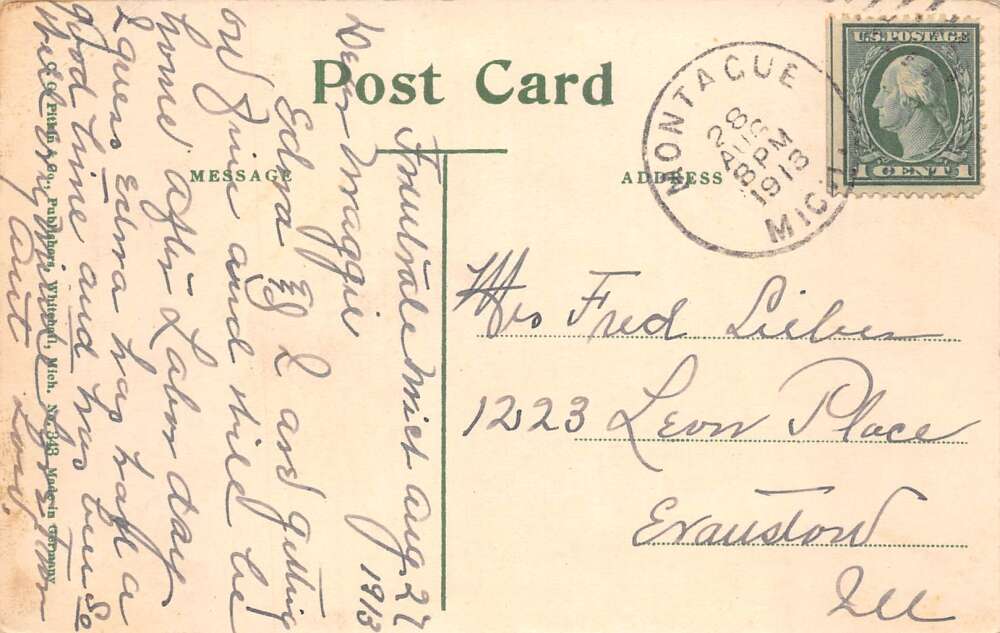 Post Card
MESSAGE
ADDRESS
MONTAGUE
28
AUG
8 PM
1913
MICH.
U.S. POSTAGE
1 CENT 1
Mrs Fred Lieber
1223 Leon Place
Evanston
Ill
Fruitvale Mich Aug 27
1913
Dear Maggie
Edna & I are getting
on fine and will be
home after Labor day
I guess Edna has had a
good time and has been so
well
Aunt
C. G. Pitkin & Co., Publishers, Whitehall, Mich. No. 343 Made in Germany